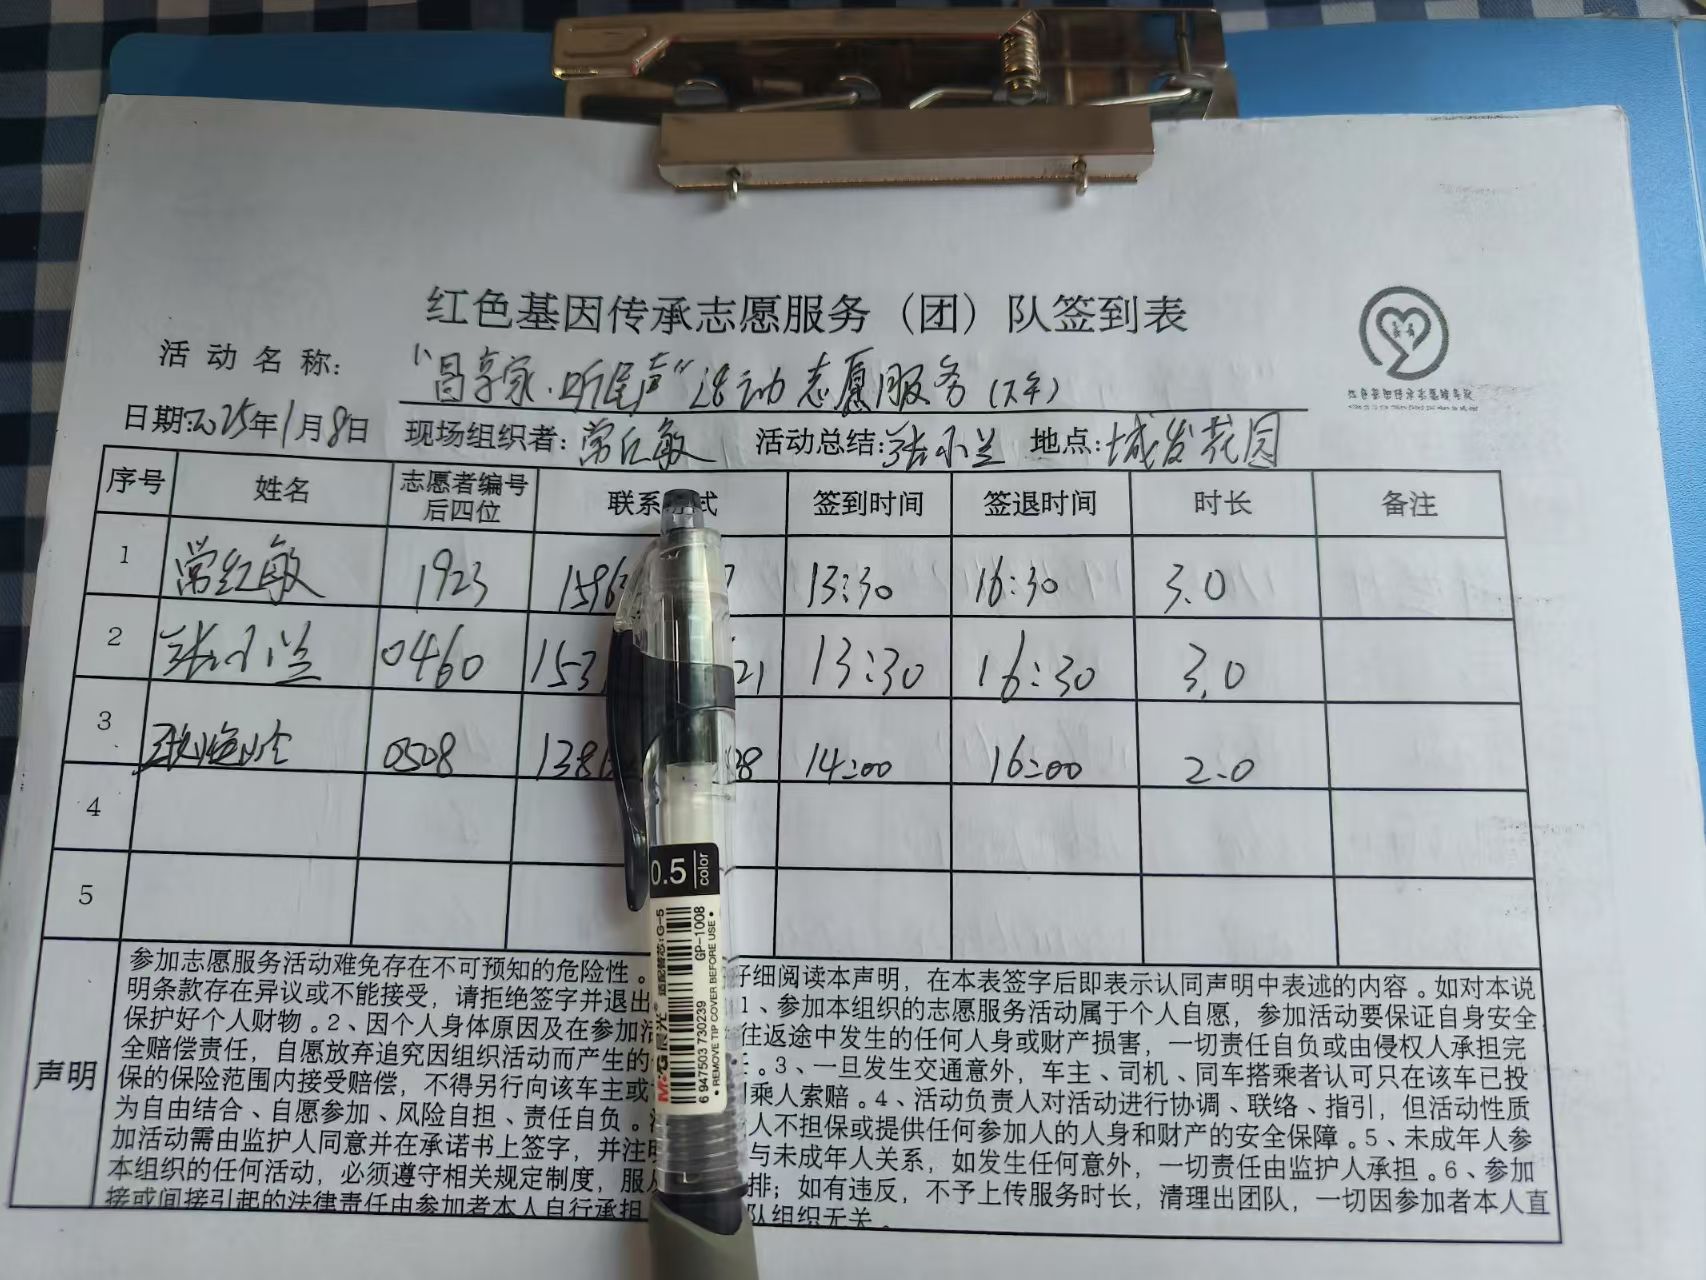 红色基因传承志愿服务（团）队签到表
活动名称： 志愿服务（下午）
日期:2025年1月8日 现场组织者:常红敏 活动总结:张小兰 地点:城发花园
序号 姓名 志愿者编号后四位 联系 式 签到时间 签退时间 时长 备注
1 常红敏 1923 1596 7 13:30 16:30 3.0
2 张小兰 0460 153 21 13:30 16:30 3.0
3 0508 1381 38 14:00 16:00 2.0
4
5
声明
参加志愿服务活动难免存在不可预知的危险性。 仔细阅读本声明，在本表签字后即表示认同声明中表述的内容。如对本说
明条款存在异议或不能接受，请拒绝签字并退出 1、参加本组织的志愿服务活动属于个人自愿，参加活动要保证自身安全
保护好个人财物。2、因个人身体原因及在参加活 往返途中发生的任何人身或财产损害，一切责任自负或由侵权人承担完
全赔偿责任，自愿放弃追究因组织活动而产生的 。3、一旦发生交通意外，车主、司机、同车搭乘者认可只在该车已投
保的保险范围内接受赔偿，不得另行向该车主或 乘人索赔。4、活动负责人对活动进行协调、联络、指引，但活动性质
为自由结合、自愿参加、风险自担、责任自负。 人不担保或提供任何参加人的人身和财产的安全保障。5、未成年人参
加活动需由监护人同意并在承诺书上签字，并注明 与未成年人关系，如发生任何意外，一切责任由监护人承担。6、参加
本组织的任何活动，必须遵守相关规定制度，服从 排；如有违反，不予上传服务时长，清理出团队，一切因参加者本人直
接或间接引起的法律责任由参加者本人自行承担 队组织无关。
0.5 color
M&G 晨光
GP-1008
6 947503 730239
• REMOVE TIP COVER BEFORE USE •